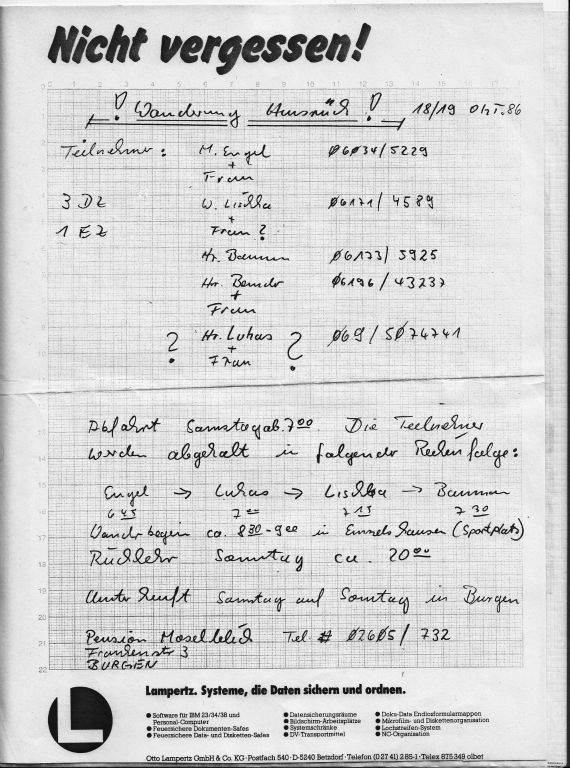 Nicht vergessen!
! Wanderung Hunsrück ! 18/19 Okt. 86
Teilnehmer: M. Engel 06034/5229
+
Frau
3 DZ W. Lischka 06171/4589
+
1 EZ Frau?
Hr. Baumann 06173/5925
Hr. Bender 06196/43237
+
Frau
? Hr. Lukas ? 069/5074741
+
Frau
Abfahrt Samstag ab 7 00 Die Teilnehmer
werden abgeholt in folgender Reihenfolge:
Engel → Lukas → Lischka → Baumann
6 45 7 00 7 15 7 30
Wanderbeginn ca. 8 30 - 9 00 in (Sportplatz)
Rückkehr Sonntag ca. 20 00
Unterkunft Samstag auf Sonntag in Burgen
Pension Moselblick Tel. # 02605/732
Frankenstr 3
BURGEN
0 1 2 3 4 5 6 7 8 9 10 11 12 13 14 15 16 17
Lampertz. Systeme, die Daten sichern und ordnen.
● Software für IBM 23/34/38 und Personal-Computer
● Feuersichere Dokumenten-Safes
● Feuersichere Date- und Disketten-Safes
● Datensicherungsräume
● Bildschirm-Arbeitsplätze
● Systemschränke
● DV-Transportmittel
● Doku-Data Endlosformularmappen
● Mikrofilm- und Diskettenorganisation
● Lochstreifen-System
● NC-Organisation
Otto Lampertz GmbH & Co. KG · Postfach 540 · D-5240 Betzdorf · Telefon (0 27 41) 285-1 · Telex 875 349 olbet